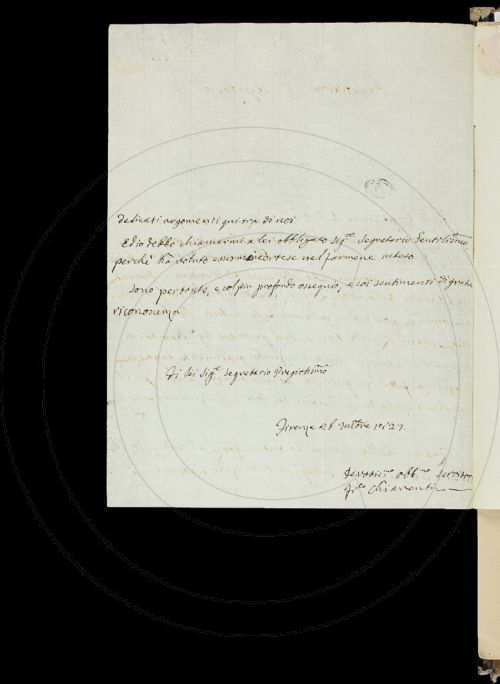 delicati argomenti qui tra di noi
Ed io debbo chiamarmi a lei obbligato Sig.e Segretario Gentilissmo
perchè ha voluto essermi cortese nel farmene inteso
Sono pertanto, e col più profondo ossequio, e coi sentimenti di grata
riconoscenza
Di Lei Sig.e Segretario Pregiatissmo
Firenze 26 1827.
Devotis.mo obb.mo Servitore
Fr.co Chiarenti